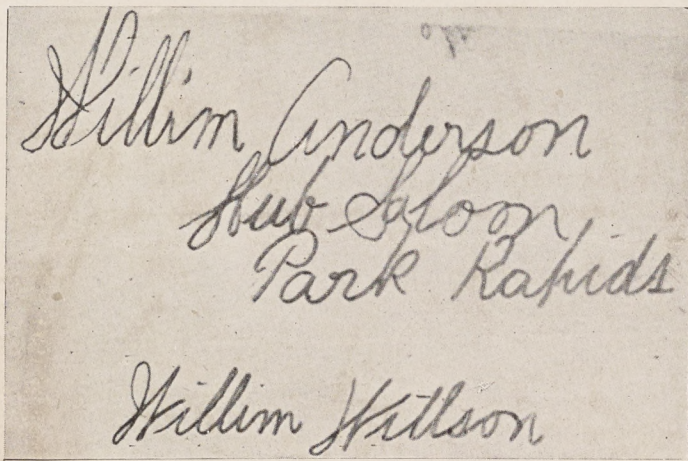 Willim Anderson
Hub Salom
Park Rapids
Willim Willson